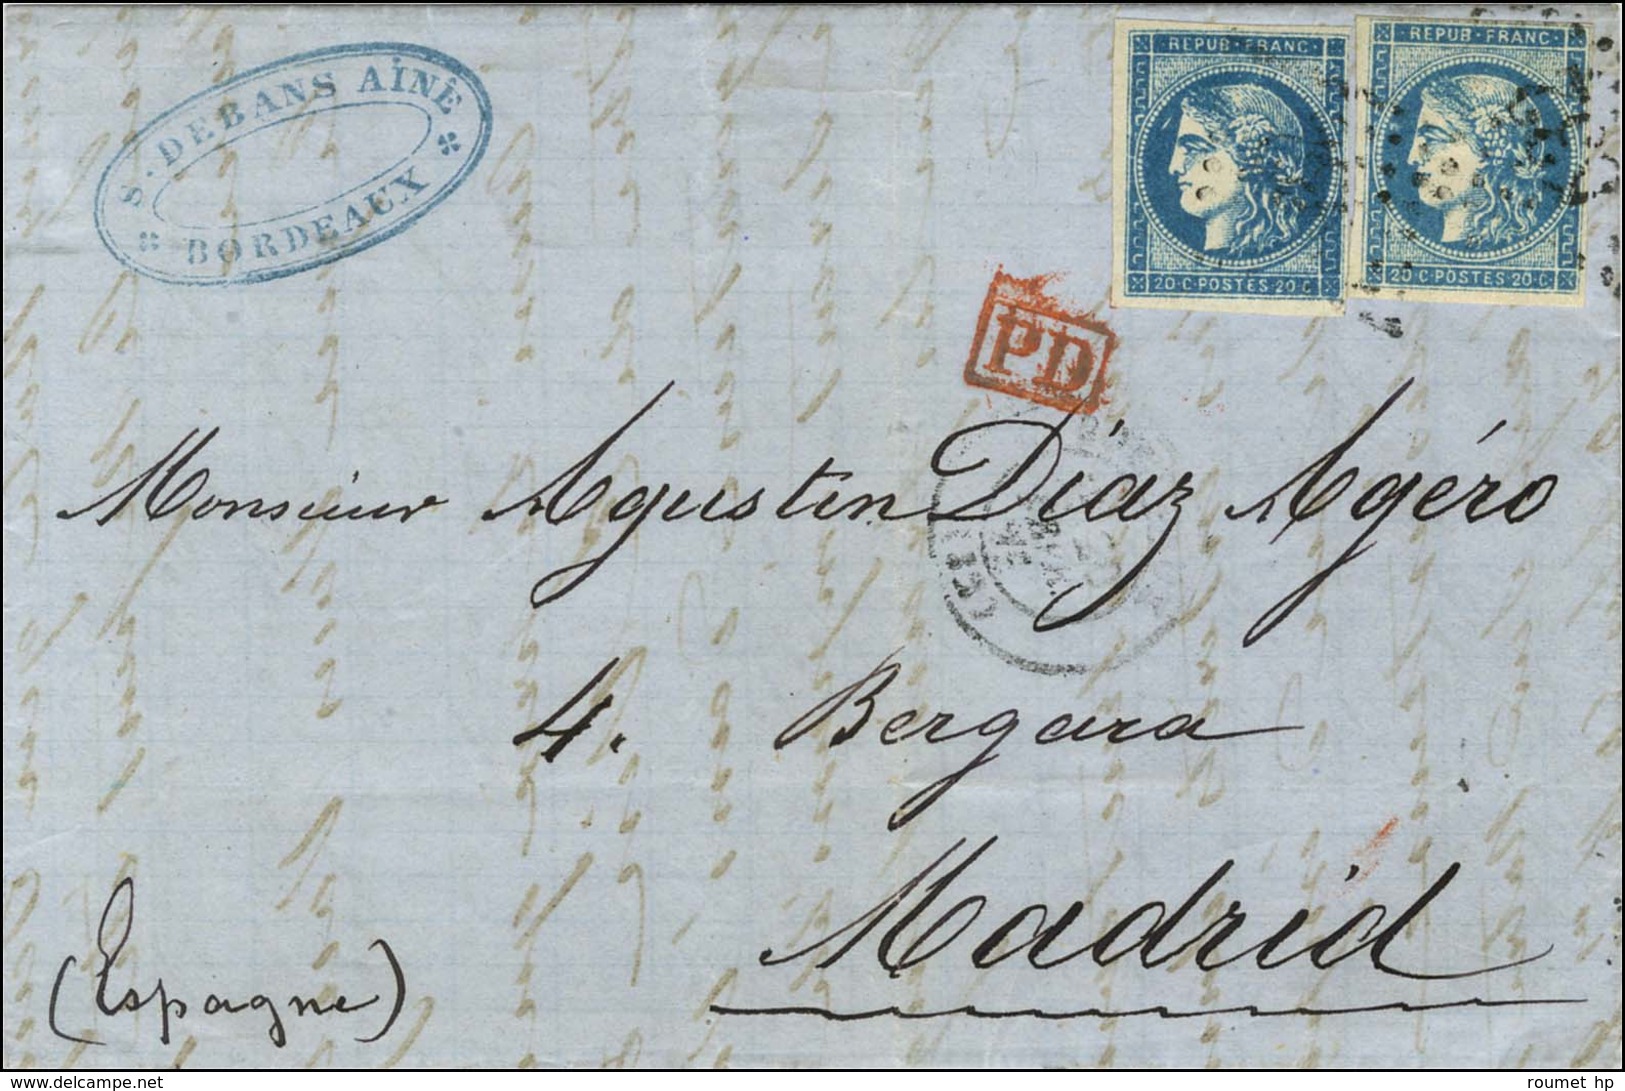 S. DEBANS AINÉ
BORDEAUX
REPUB·FRANC·
20·C·POSTES·20·C·
REPUB·FRANC·
20·C·POSTES·20·C·
PD
Monsieur Agustin Díaz Agéro
4. Bergara
Madrid
(Espagne)
www.delcampe.net
roumet_hp